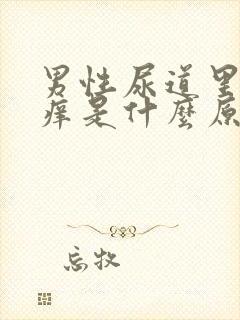 男性尿道里
痒是什麼原
忘牧